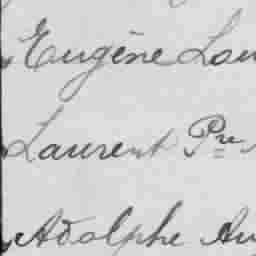 Eugène Lou
Laurent Pre
Adolphe Au